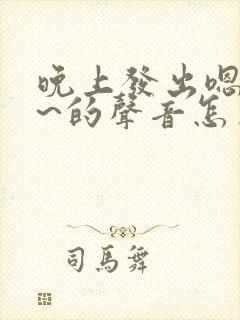 晚上發出嗯
~的聲音怎
司馬舞